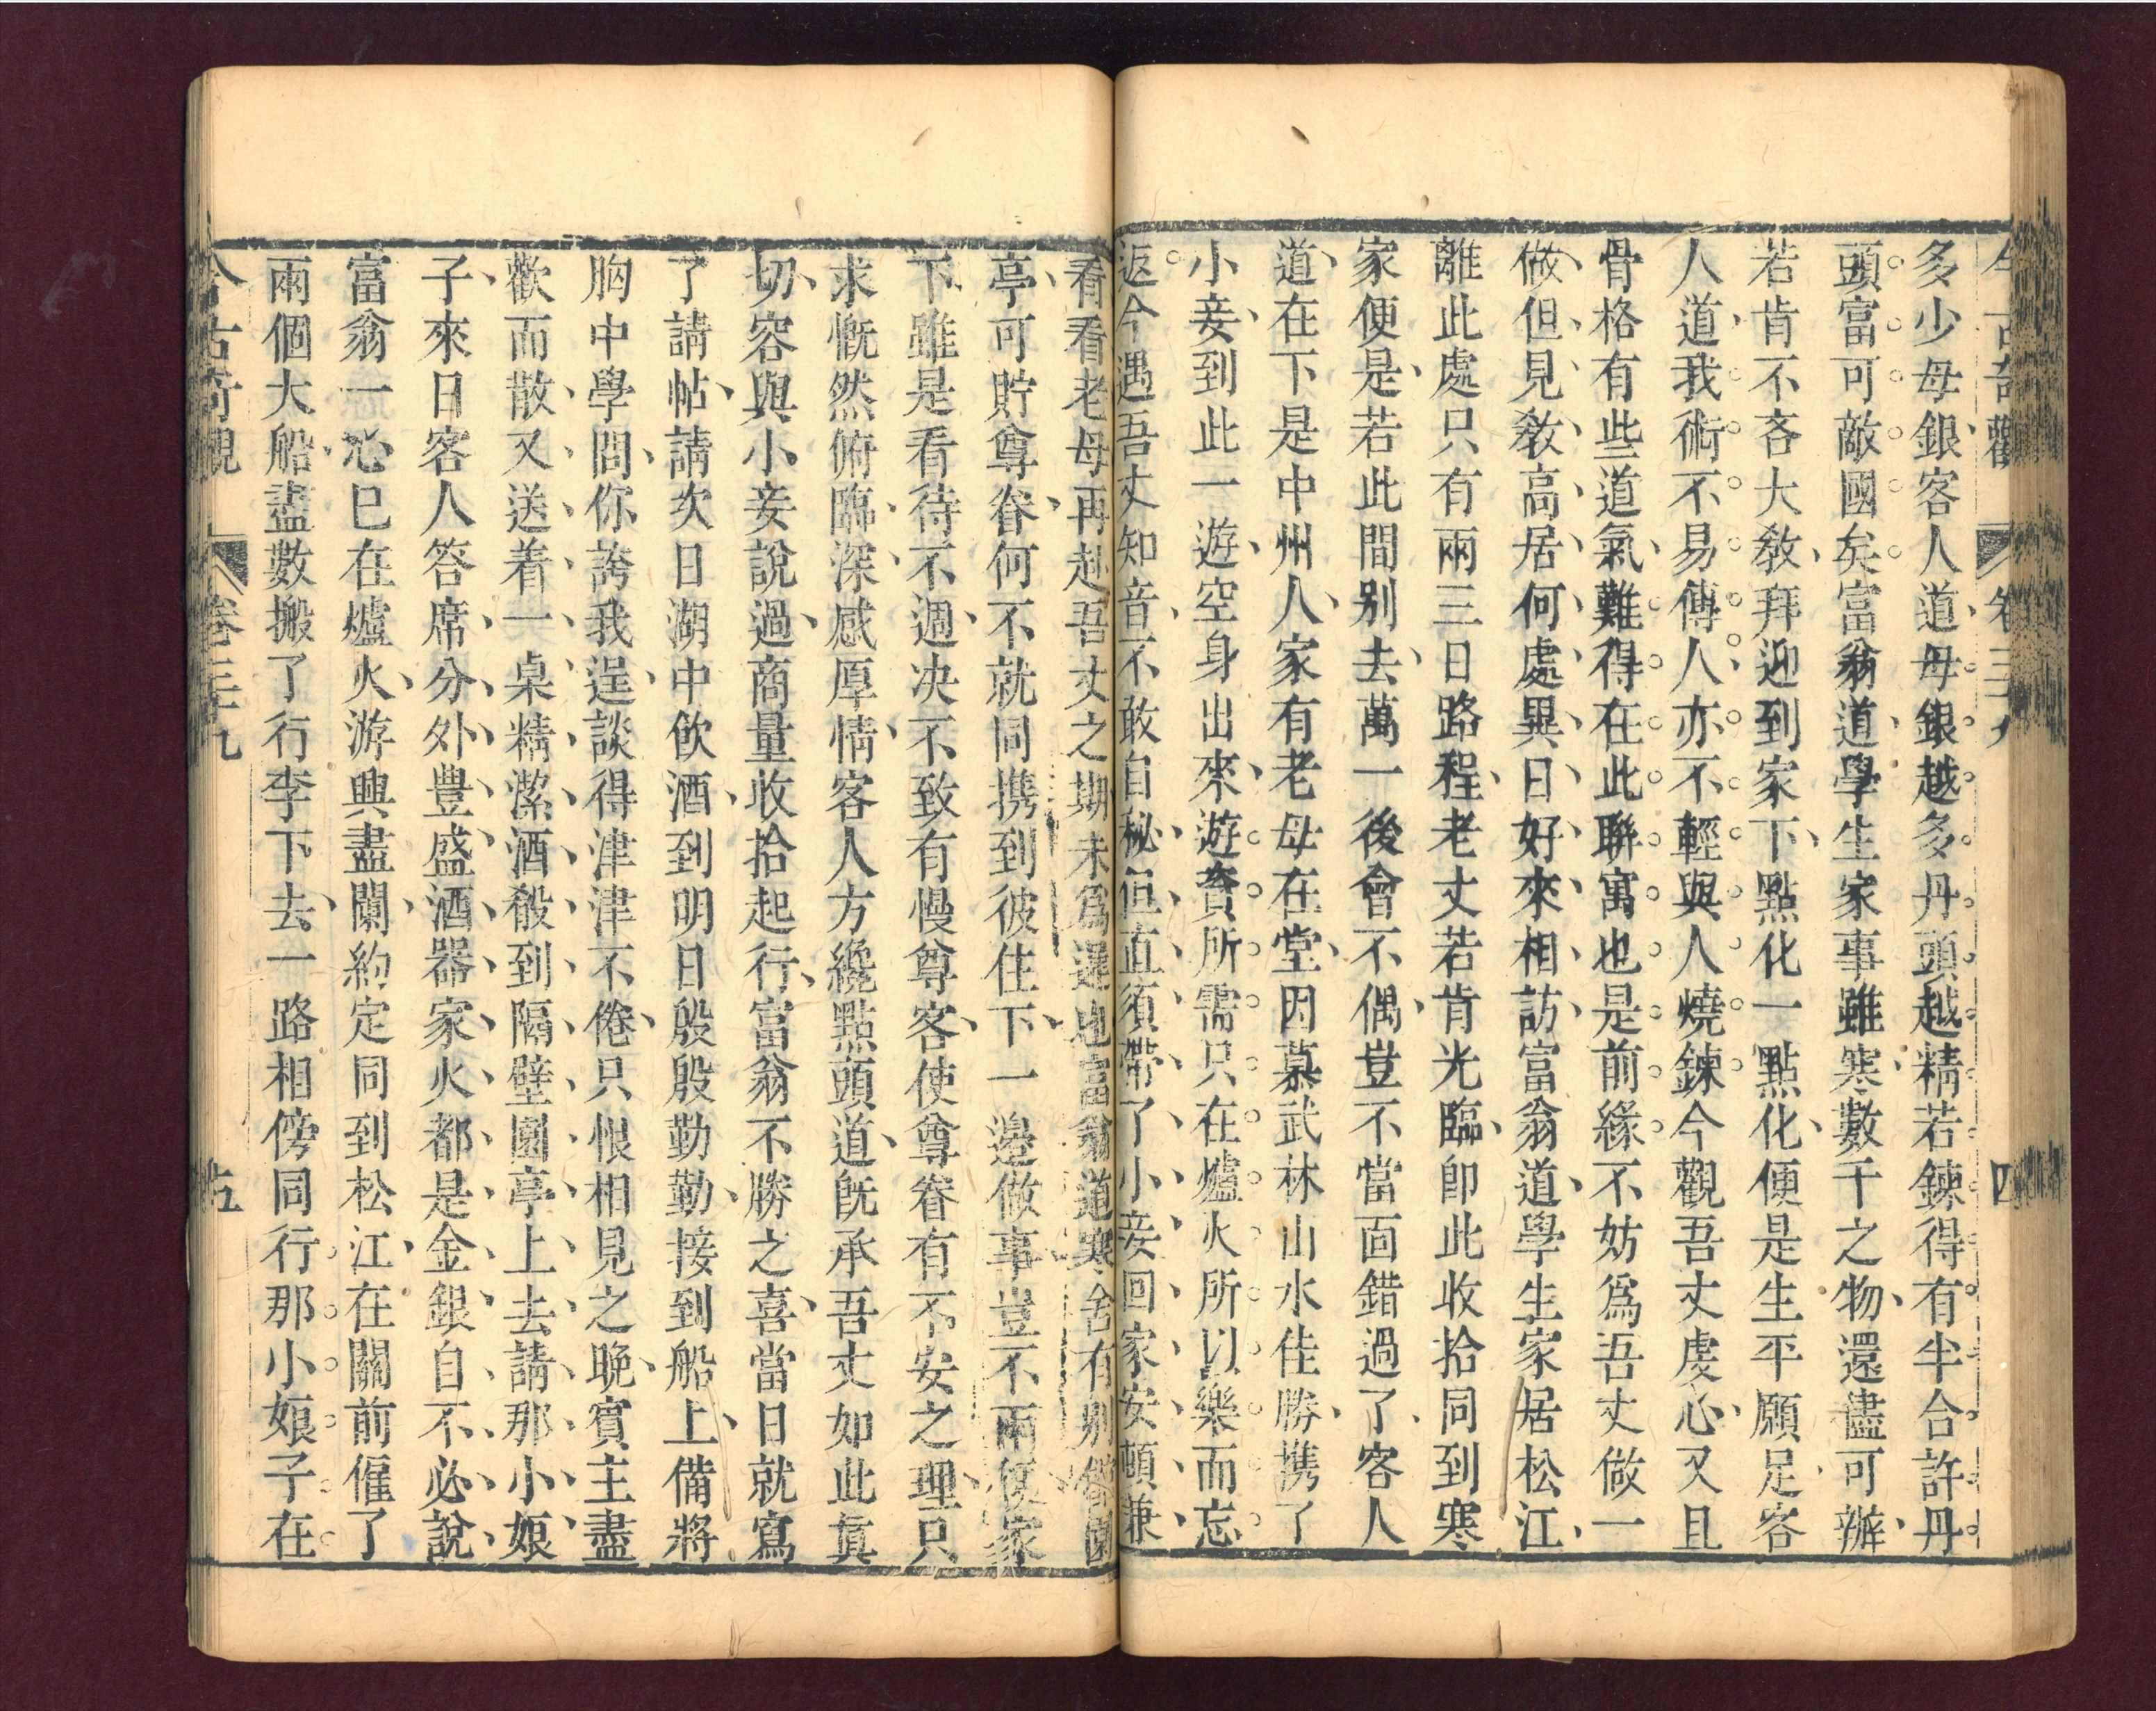 今古奇觀 卷三十九 四
多少母銀客人道母銀越多丹頭越精若鍊得有半合許丹
頭富可敵國矣富翁道學生家事雖寒數千之物還儘可辦
若肯不吝大教拜迎到家下點化一點化便是生平願足客
人道我術不易傳人亦不輕與人燒鍊今觀吾丈虔心又且
骨格有些道氣難得在此聯寓也是前緣不妨爲吾丈做一
做但見教高居何處異日好來相訪富翁道學生家居松江
離此處只有兩三日路程老丈若肯光臨即此收拾同到寒
家便是若此間别去萬一後會不偶豈不當面錯過了客人
道在下是中州人家有老母在堂因慕武林山水佳勝攜了
小妾到此一遊空身出來遊賚所需只在爐火所以樂而忘
返今遇吾丈知音不敢自秘但直須帶了小妾回家安頓兼
看看老母再赴吾丈之期未爲遲也富翁道寒舍有别館園
亭可貯尊眷何不就同携到彼住下一邊做事豈不兩便家
下雖是看待不週决不致有慢尊客使尊眷有不安之理只
求慨然俯臨深感厚情客人方纔點頭道旣承吾丈如此眞
切容與小妾說過商量收拾起行富翁不勝之喜當日就寫
了請帖請次日湖中飲酒到明日殷殷勤勤接到船上備將
胸中學問你誇我逞談得津津不倦只恨相見之晚賓主盡
歡而散又送着一桌精潔酒殽到隔壁園亭上去請那小娘
子來日客人答席分外豐盛酒器家火都是金銀自不必說
富翁一心已在爐火游興盡闌約定同到松江在關前僱了
兩個大船盡數搬了行李下去一路相傍同行那小娘子在
今古奇觀 卷三十九 五